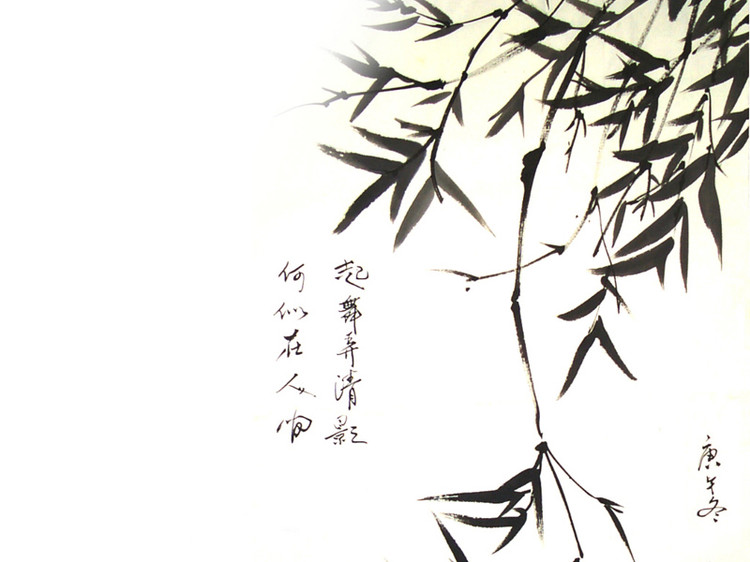 庚午冬
起舞弄清影
何似在人间